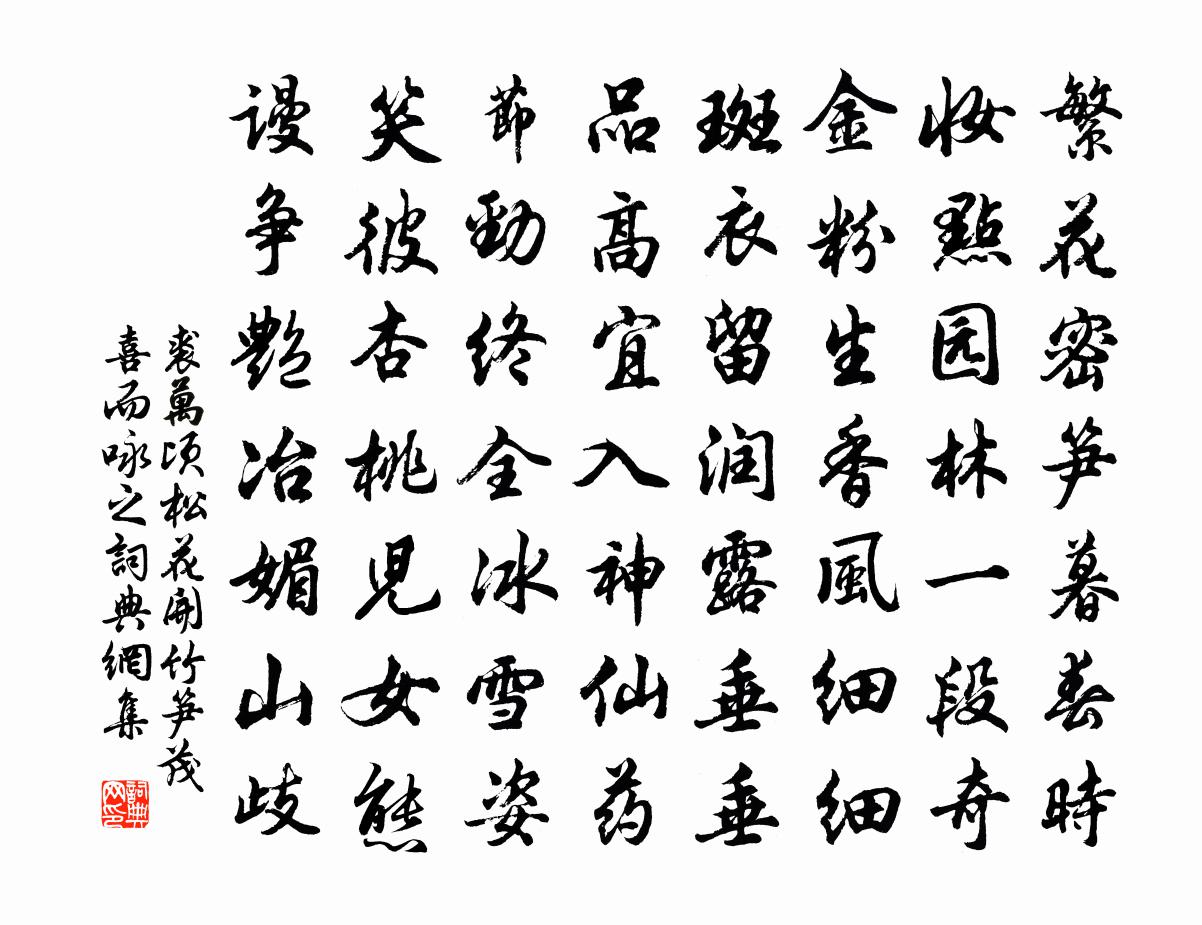 繁花密笋暮春時
妝點园林一段奇
金粉生香風細細
斑衣留润露垂垂
品高宜入神仙药
節勁終全冰雪姿
笑彼杏桃児女態
謾争艷冶媚山歧
裘萬頃松花開竹笋茂
喜而咏之詞典網集
詞典网印